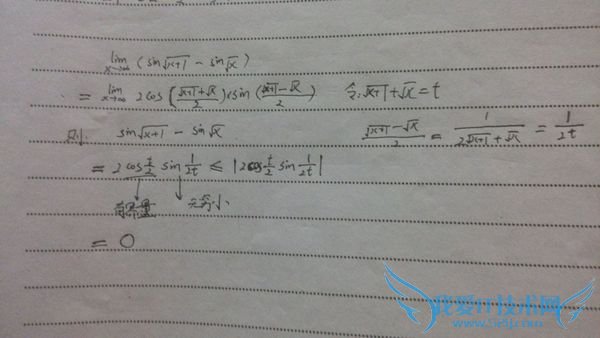 lim x→∞ (sin√x+1 − sin√x)
= lim x→∞ 2cos(√x+1+√x / 2)·sin(√x+1−√x / 2) 令:√x+1+√x=t
则: sin√x+1 − sin√x √x+1−√x / 2 = 1 / 2√x+1+√x = 1 / 2t
= 2cos t/2 sin 1/2t ≤ |2cos t/2 sin 1/2t|
无穷小
= 0
我爱IT技术网
www.52ij.com